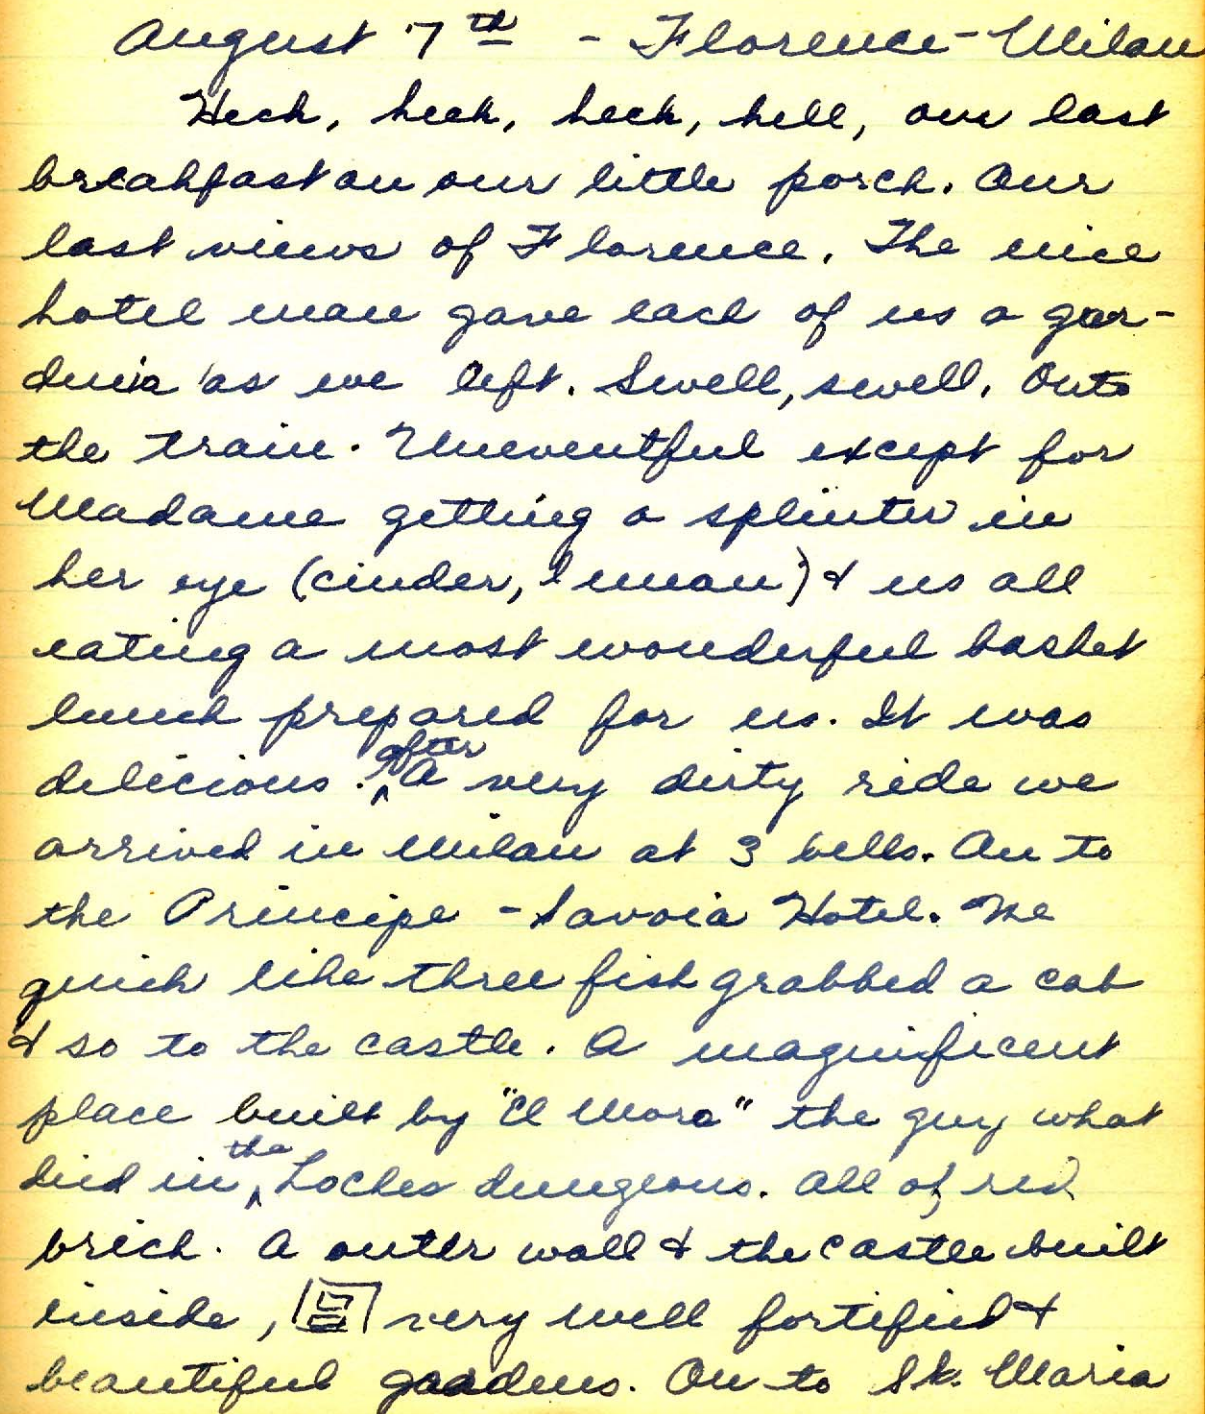 August 7th - Florence - Milan
Heck, heck, heck, hell, our last
breakfast on our little porch. Our
last views of Florence. The nice
hotel man gave each of us a gar-
denia as we left. Swell, swell. Onto
the train. Uneventful except for
Madame getting a splinter in
her eye (cinder, I mean) & us all
eating a most wonderful basket
lunch prepared for us. It was
delicious. after a very dirty ride we
arrived in Milan at 3 bells. On to
the Principe - Savoia Hotel. We
quick like three fish grabbed a cab
& so to the castle. A magnificent
place built by "Il Moro" the guy what
died in the Loches dungeons. All of red
brick. A outer wall & the castle built
inside, very well fortified &
beautiful gardens. On to St. Maria